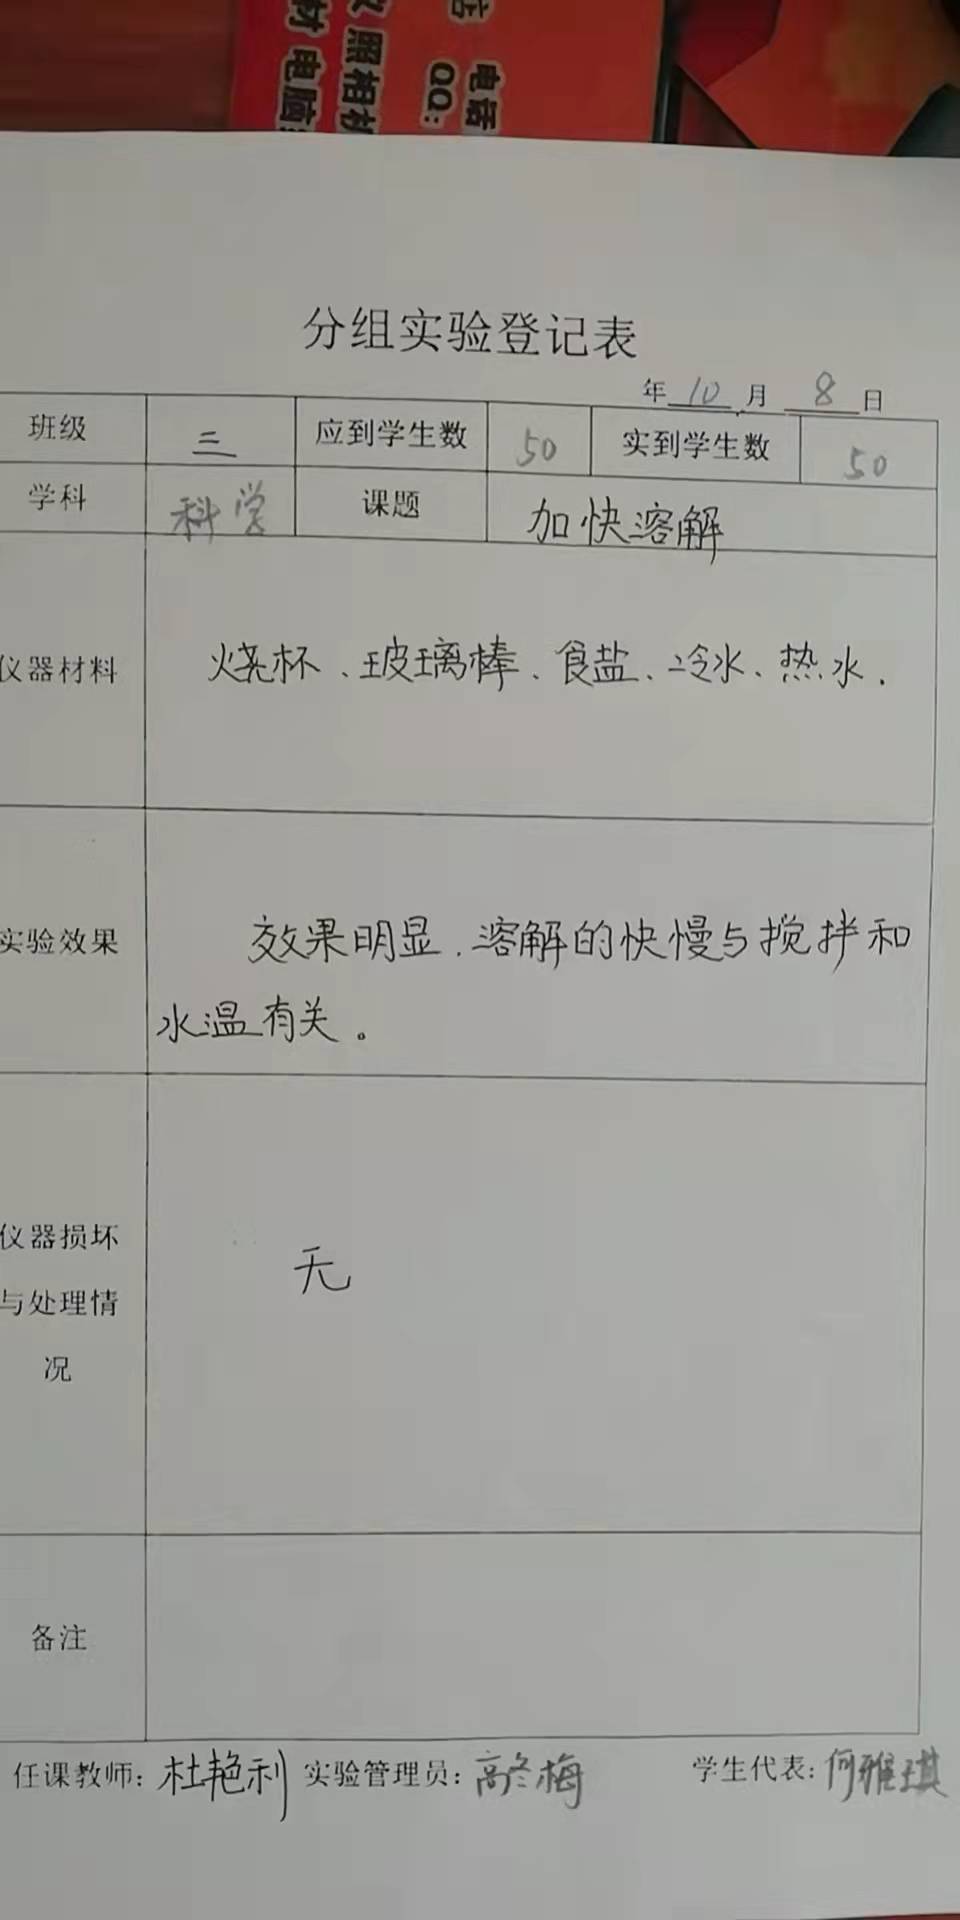 材 电脑
仪 照相机
店
QQ:
电话
分组实验登记表
年 10 月 8 日
班级 三 应到学生数 50 实到学生数 50
学科 科学 课题 加快溶解
仪器材料 烧杯、玻璃棒、食盐、冷水、热水.
实验效果 效果明显.溶解的快慢与搅拌和
水温有关。
仪器损坏
与处理情
况
无
备注
任课教师: 杜艳利 实验管理员: 高冬梅 学生代表: 何雅琪